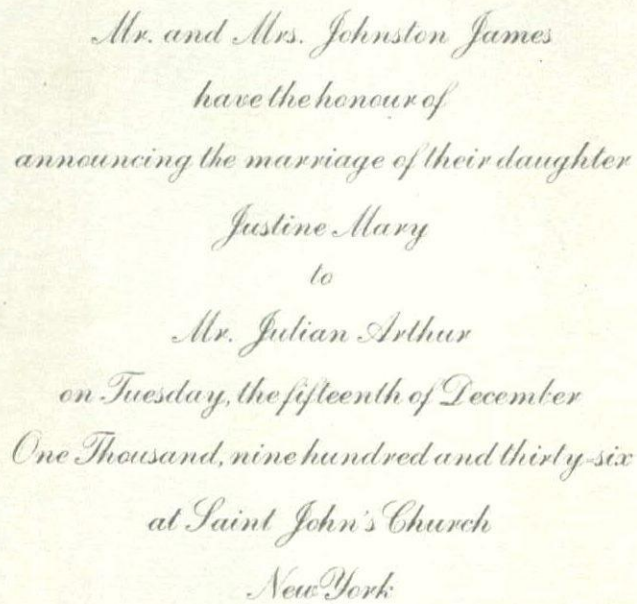 Mr. and Mrs. Johnston James
have the honour of
announcing the marriage of their daughter
Justine Mary
to
Mr. Julian Arthur
on Tuesday, the fifteenth of December
One Thousand, nine hundred and thirty-six
at Saint John's Church
New York